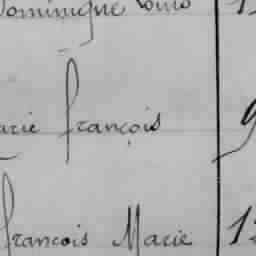 Dominique Louis 1
arie françois 9
françois Marie 12